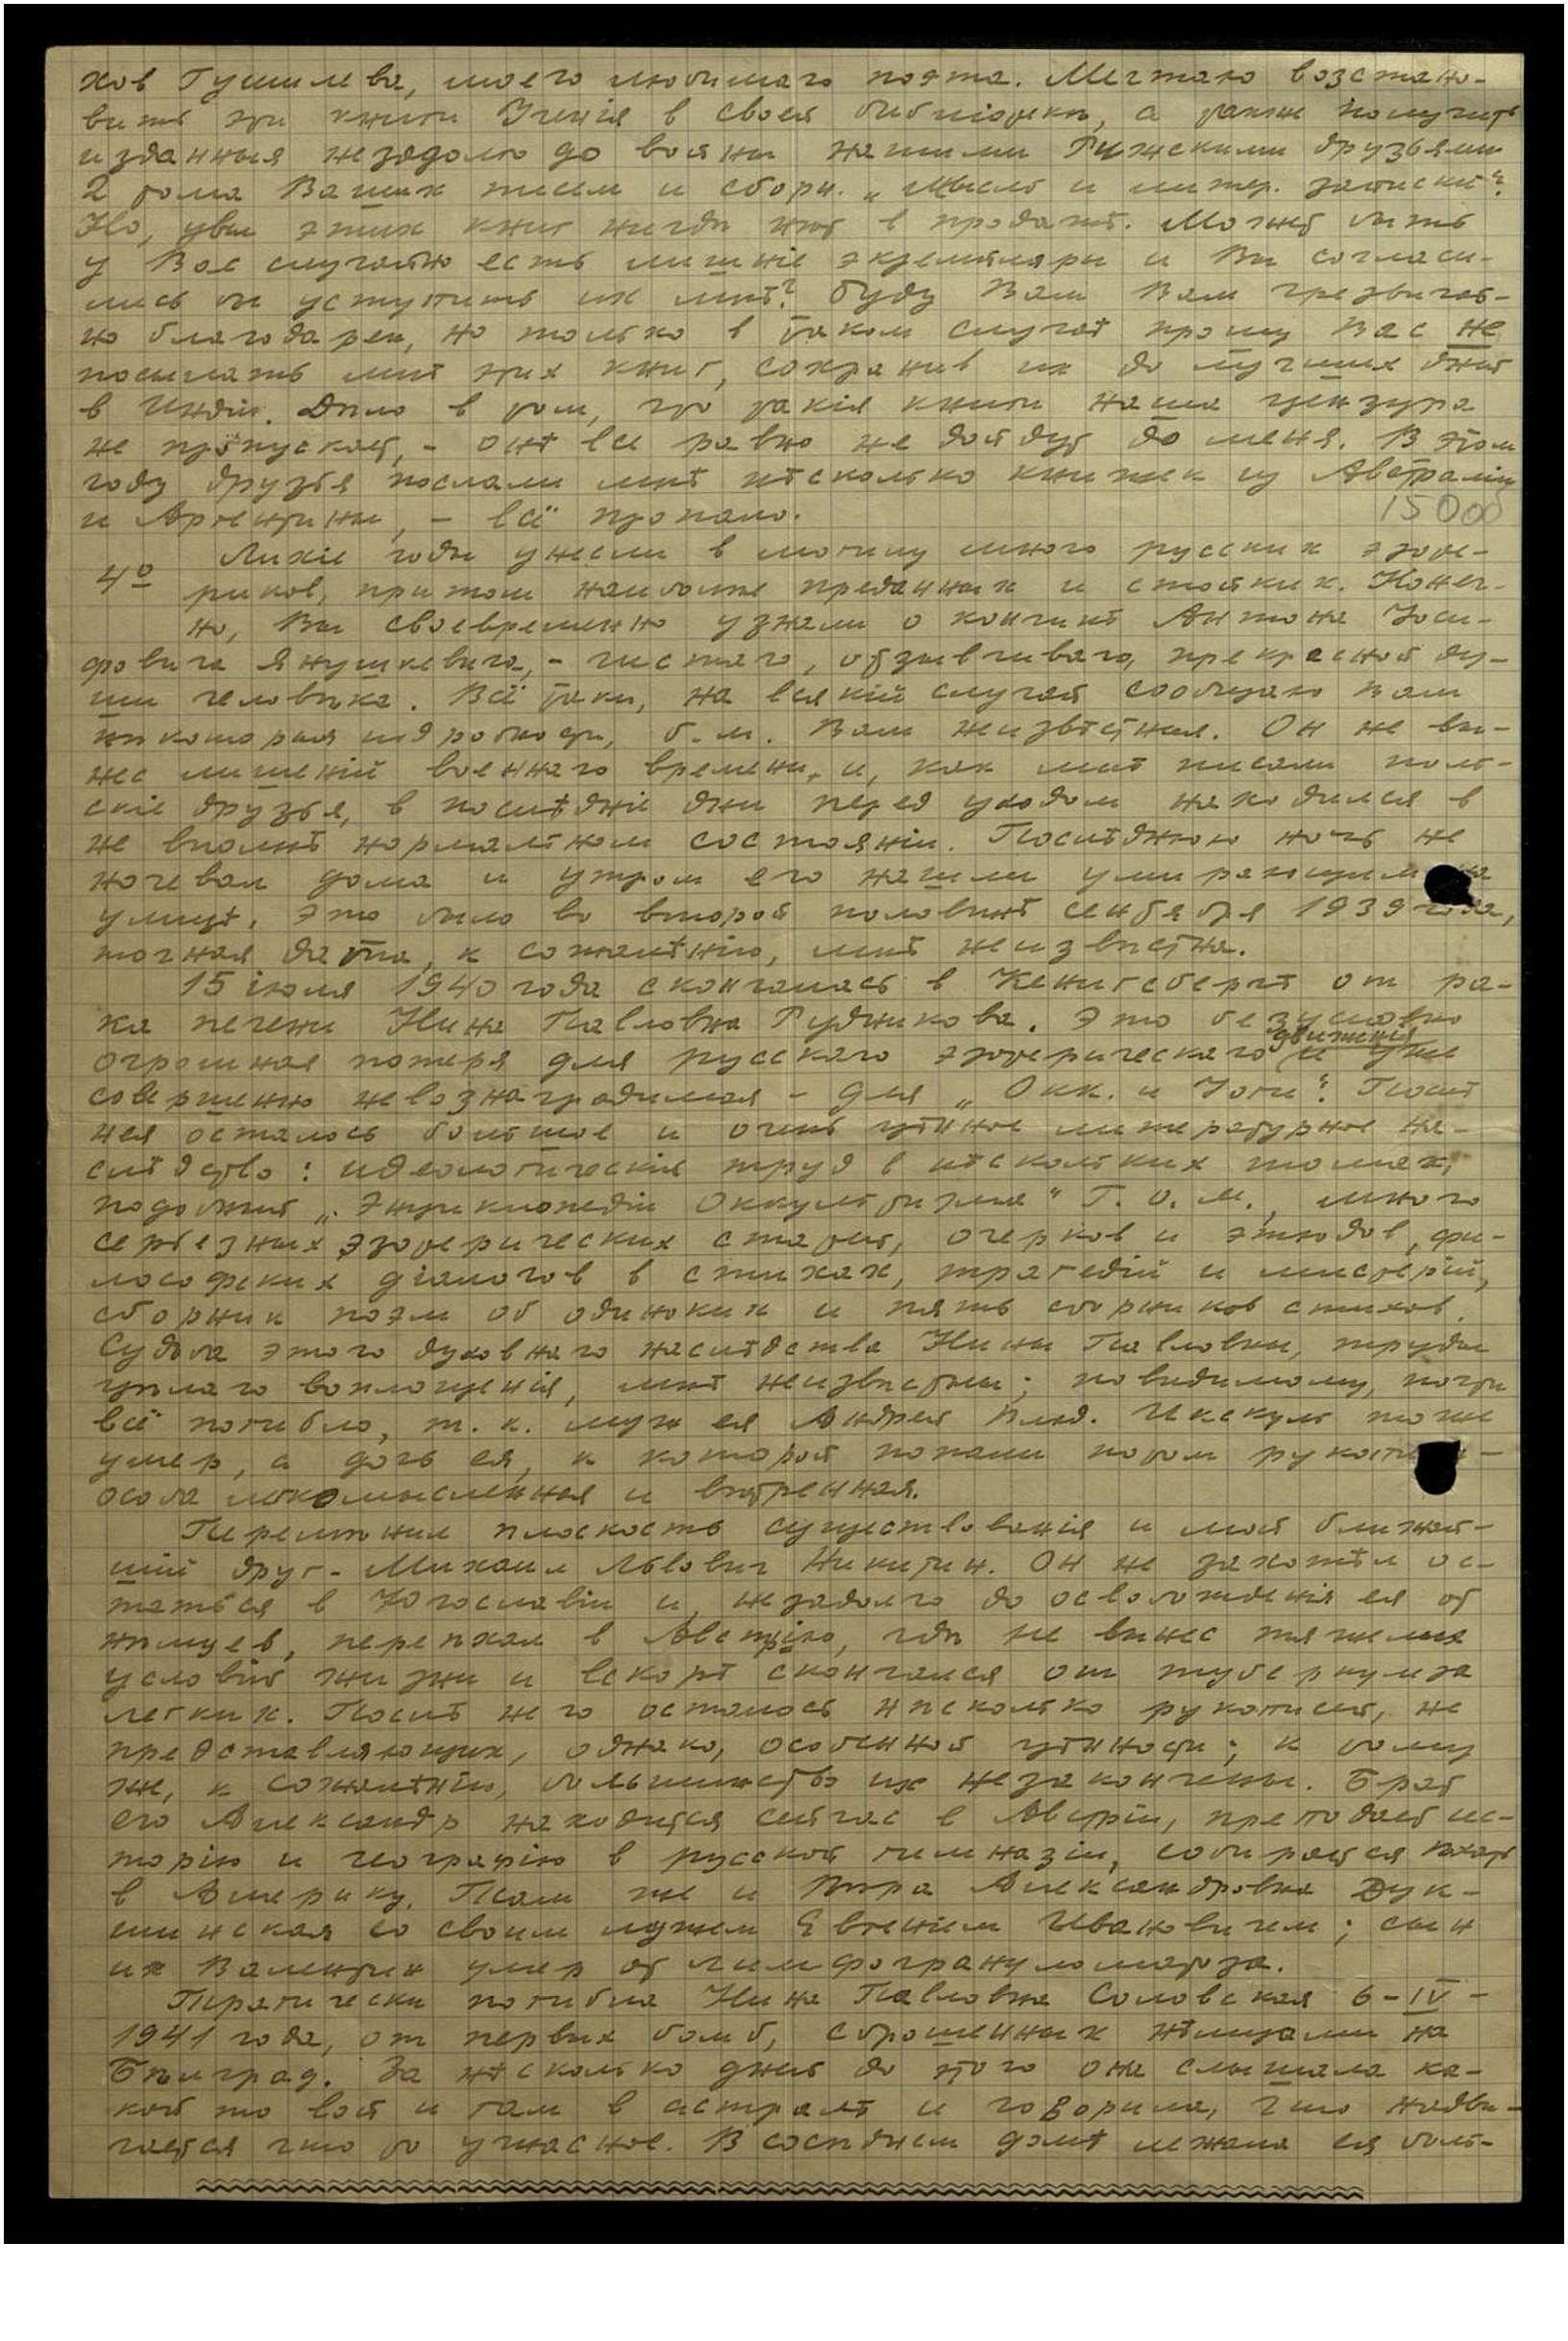 хов Гумилева, моего любимаго поэта. Мечтаю возстано-
вить эти книги Ученія в своей библіотекѣ, а также получить
изданныя незадолго до войны нашими Рижскими друзьями
2 тома Ваших писем и сборн. „Мысль и литер. записки“.
Но, увы этих книг нигдѣ нѣт в продажѣ. Может быть
у Вас случайно есть лишніе экземпляры и Вы согласи-
лись бы уступить их мнѣ? Буду Вам Вам чрезвычай-
но благодарен, но только в таком случаѣ прошу Вас не
посылать мнѣ этих книг, сохранив их до лучших дней
в Индіи. Дѣло в том, что такія книги наша цензура
не пропускает, - онѣ все равно не дойдут до меня. В этом
году друзья послали мнѣ нѣсколько книжек из Австраліи
и Аргентины, - всё пропало.
15000
4º Лихіе годы унесли в могилу много русских эзоте-
риков, притом наиболѣе преданных и стойких. Конеч-
но, Вы своевременно узнали о кончинѣ Антона Іоси-
фовича Янушкевича, - чистаго, отзывчиваго, прекрасной ду-
ши человѣка. Всё таки, на всякій случай сообщаю Вам
нѣкоторыя подробности, б. м. Вам неизвѣстныя. Он не вы-
нес лишеній военнаго времени, и, как мнѣ писали поль-
скіе друзья, в послѣдніе дни перед уходом находился в
не вполнѣ нормальном состояніи. Послѣднюю ночь не
ночевал дома и утром его нашли умирающим на
улицѣ. Это было во второй половинѣ сентября 1939 года,
точная дата, к сожалѣнію, мнѣ неизвѣстна.
15 іюля 1940 года скончалась в Кенигсбергѣ от ра-
ка печени Нина Павловна Рудникова. Это безусловно
огромная потеря для русскаго эзотерическаго движенія и уже
совершенно невознаградимая - для „Окк. и Йоги“. Послѣ
нея осталось большое и очень цѣнное литературное на-
слѣдство: идеологическій труд в нѣскольких томах,
подобный „Энциклопедіи Оккультизма“ Г. О. М., много
серьезных эзотерических статей, очерков и этюдов, фи-
лософских діалогов в стихах, трагедій и мистерій,
сборник поэм об одиноких и пять сборников стихов.
Судьба этого духовнаго наслѣдства Нины Павловны, труды
цѣлаго воплощенія, мнѣ неизвѣстны; повидимому, почти
всё погибло, т. к. муж ея Андрей Влад. Икскуль тоже
умер, а дочь ея, к которой попали потом рукописи -
особа легкомысленная и вѣтренная.
Перемѣнил плоскость существованія и мой ближай-
шій друг - Михаил Львович Никитин. Он не захотѣл ос-
таться в Югославіи и, незадолго до освобожденія ея от
нѣмцев, переѣхал в Австрію, гдѣ не вынес тяжелых
условій жизни и вскорѣ скончался от туберкулеза
легких. Послѣ него осталось нѣсколько рукописей, не
представляющих, однако, особенной цѣнности; к тому
же, к сожалѣнію, большинство их незакончены. Брат
его Александр находится сейчас в Австріи, преподает ис-
торію и географію в русской гимназіи, собирается ѣхать
в Америку. Там же и Вѣра Александровна Дук-
шинская со своим мужем Евгеніем Ивановичем; сын
их Валентин умер от лимфогрануломатоза.
Трагически погибла Нина Павловна Соловская 6-IV-
1941 года, от первых бомб, сброшенных нѣмцами на
Бѣлград. За нѣсколько дней до этого она слышала ка-
кой то вой и гам в астралѣ и говорила, что надви-
гается что то ужасное. В сосѣднем домѣ лежала ея боль-